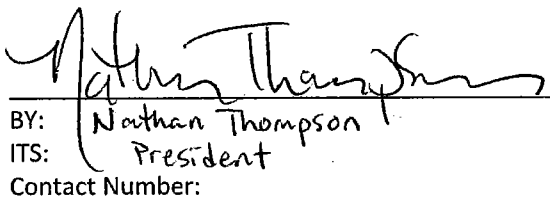 Nathan Thompson
BY: Nathan Thompson
ITS: President
Contact Number: